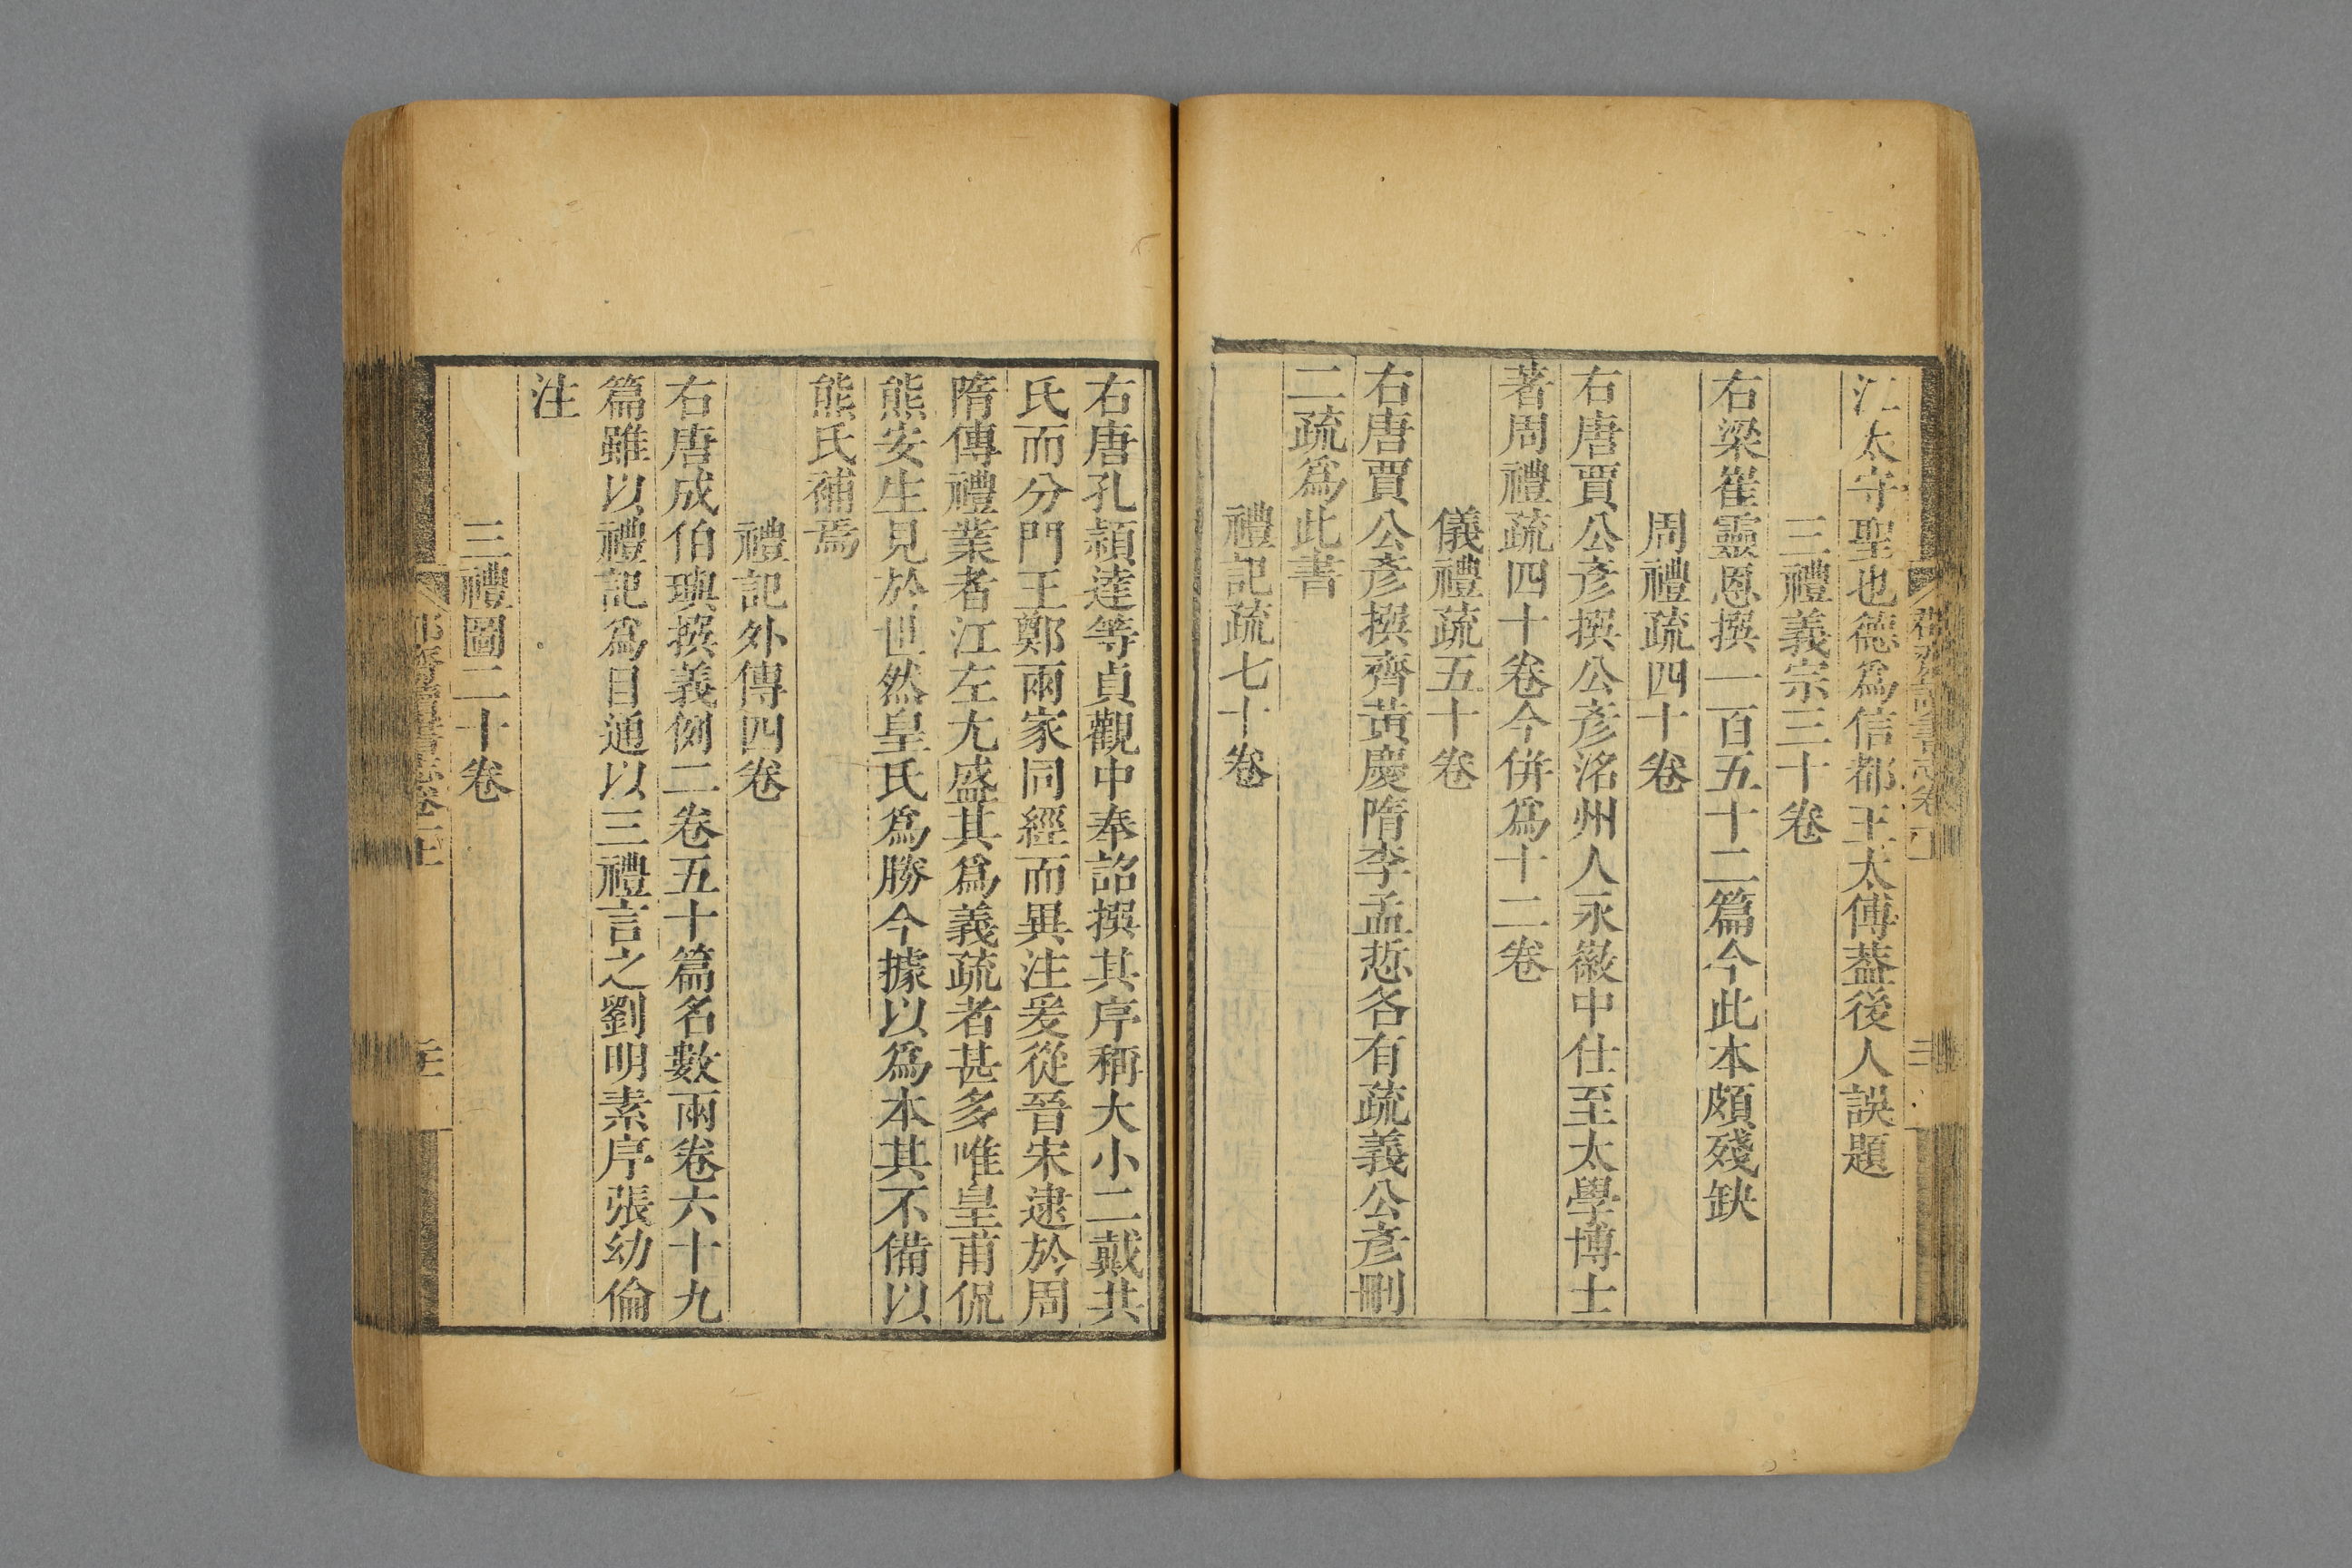 江太守聖也德爲信都王太傅葢後人誤題
三禮義宗三十卷
右梁崔靈恩撰一百五十二篇今此本頗殘缺
周禮疏四十卷
右唐賈公彥撰公彥洺州人永徽中仕至太學博士
著周禮疏四十卷今併爲十二卷
儀禮疏五十卷
右唐賈公彥撰齊黃慶隋李孟悊各有疏義公彥刪
二疏爲此書
禮記疏七十卷
右唐孔穎達等貞觀中奉詔撰其序稱大小二戴共
氏而分門王鄭兩家同經而異注爰從晉宋逮於周
隋傳禮業者江左尢盛其爲義疏者甚多唯皇甫侃
熊安生見於世然皇氏爲勝今據以爲本其不備以
熊氏補焉
禮記外傳四卷
右唐成伯璵撰義例二卷五十篇名數兩卷六十九
篇雖以禮記爲目通以三禮言之劉明素序張幼倫
注
三禮圖二十卷